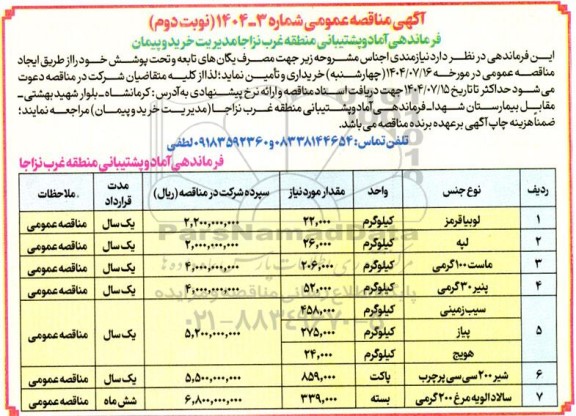 آگهی مناقصه عمومی شماره ۳-۱۴۰۴ (نوبت دوم)
فرماندهی آماد و پشتیبانی منطقه غرب نزاجا مدیریت خرید و پیمان
این فرماندهی در نظر دارد نیازمندی اجناس مشروحه زیر جهت مصرف یگان های تابعه و تحت پوشش خود را از طریق ایجاد
مناقصه عمومی در مورخه ۱۴۰۴/۰۷/۱۶ (چهارشنبه) خریداری و تأمین نماید؛ لذا از کلیه متقاضیان شرکت در مناقصه دعوت
می شود حداکثر تا تاریخ ۱۴۰۴/۰۷/۱۵ جهت دریافت اسناد مناقصه و ارائه نرخ پیشنهادی به آدرس: کرمانشاه - بلوار شهید بهشتی -
مقابل بیمارستان شهدا - فرماندهی آماد و پشتیبانی منطقه غرب نزاجا (مدیریت خرید و پیمان) مراجعه نمایند؛
ضمناً هزینه چاپ آگهی بر عهده برنده مناقصه می باشد.
تلفن تماس: ۰۸۳۳۸۱۴۴۶۵۴ و ۰۹۱۸۳۵۹۲۳۶۰ لطفی
فرماندهی آماد و پشتیبانی منطقه غرب نزاجا
ردیف نوع جنس واحد مقدار مورد نیاز سپرده شرکت در مناقصه (ریال) مدت قرارداد ملاحظات
۱ لوبیا قرمز کیلوگرم ۲۲,۰۰۰ ۲,۲۰۰,۰۰۰,۰۰۰ یک سال مناقصه عمومی
۲ لپه کیلوگرم ۲۶,۰۰۰ ۲,۰۰۰,۰۰۰,۰۰۰ یک سال مناقصه عمومی
۳ ماست ۱۰۰ گرمی کیلوگرم ۲۰۶,۰۰۰ ۴,۰۰۰,۰۰۰,۰۰۰ یک سال مناقصه عمومی
۴ پنیر ۳۰ گرمی کیلوگرم ۵۲,۰۰۰ ۴,۰۰۰,۰۰۰,۰۰۰ یک سال مناقصه عمومی
۵ سیب زمینی کیلوگرم ۴۵۸,۰۰۰ ۵,۲۰۰,۰۰۰,۰۰۰ یک سال مناقصه عمومی
پیاز کیلوگرم ۲۷۵,۰۰۰
هویج کیلوگرم ۲۴,۰۰۰
۶ شیر ۲۰۰ سی سی پرچرب پاکت ۸۵۹,۰۰۰ ۵,۵۰۰,۰۰۰,۰۰۰ یک سال مناقصه عمومی
۷ سالاد الویه مرغ ۲۰۰ گرمی بسته ۳۳۹,۰۰۰ ۶,۸۰۰,۰۰۰,۰۰۰ شش ماه مناقصه عمومی
ParsNamadData